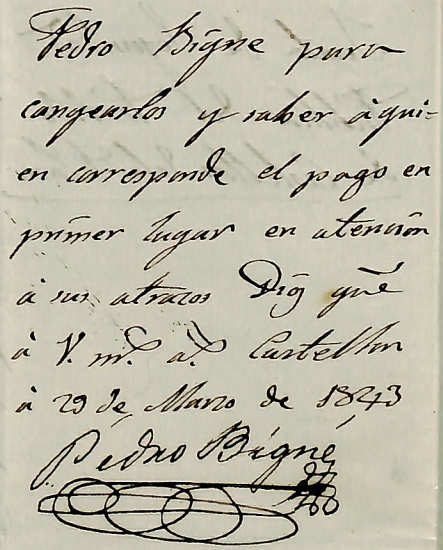 Pedro Bigne para
cangearlos y saber à qui=
en corresponde el pago en
primer lugar en atencion
à sus atrazos Dios gue
à V. ms. as. Castellon
à 29 de Marzo de 1843
Pedro Bigné